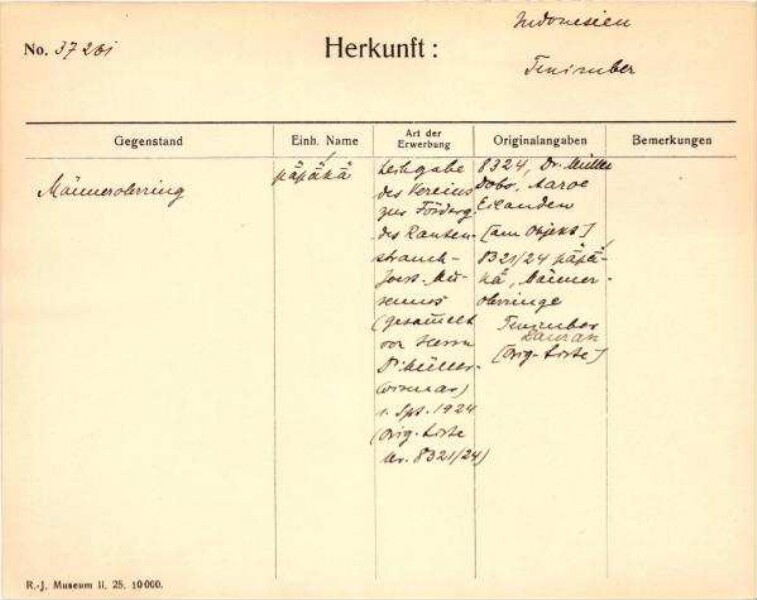 Indonesien
No. 37201 Herkunft:
Tenimber
Gegenstand Einh. Name Art der Erwerbung Originalangaben Bemerkungen
Männerohrring
päpäkä
Leihgabe
des Vereins
zur Förderg.
des Rauten-
strauch-
Joest-Mu-
seums
(gesammelt
von Herrn
Dr. Müller-
Wismar)
1. Spt. 1924
(Orig-Liste
Nr. 8321/24)
8324, Dr. Müller
Dobo, Aaroe
Eilanden
[am Objekt]
8321/24 päpä-
kä, Männer-
ohrringe
Tenimber
[Orig-Liste]
R.-J. Museum II. 25. 10000.